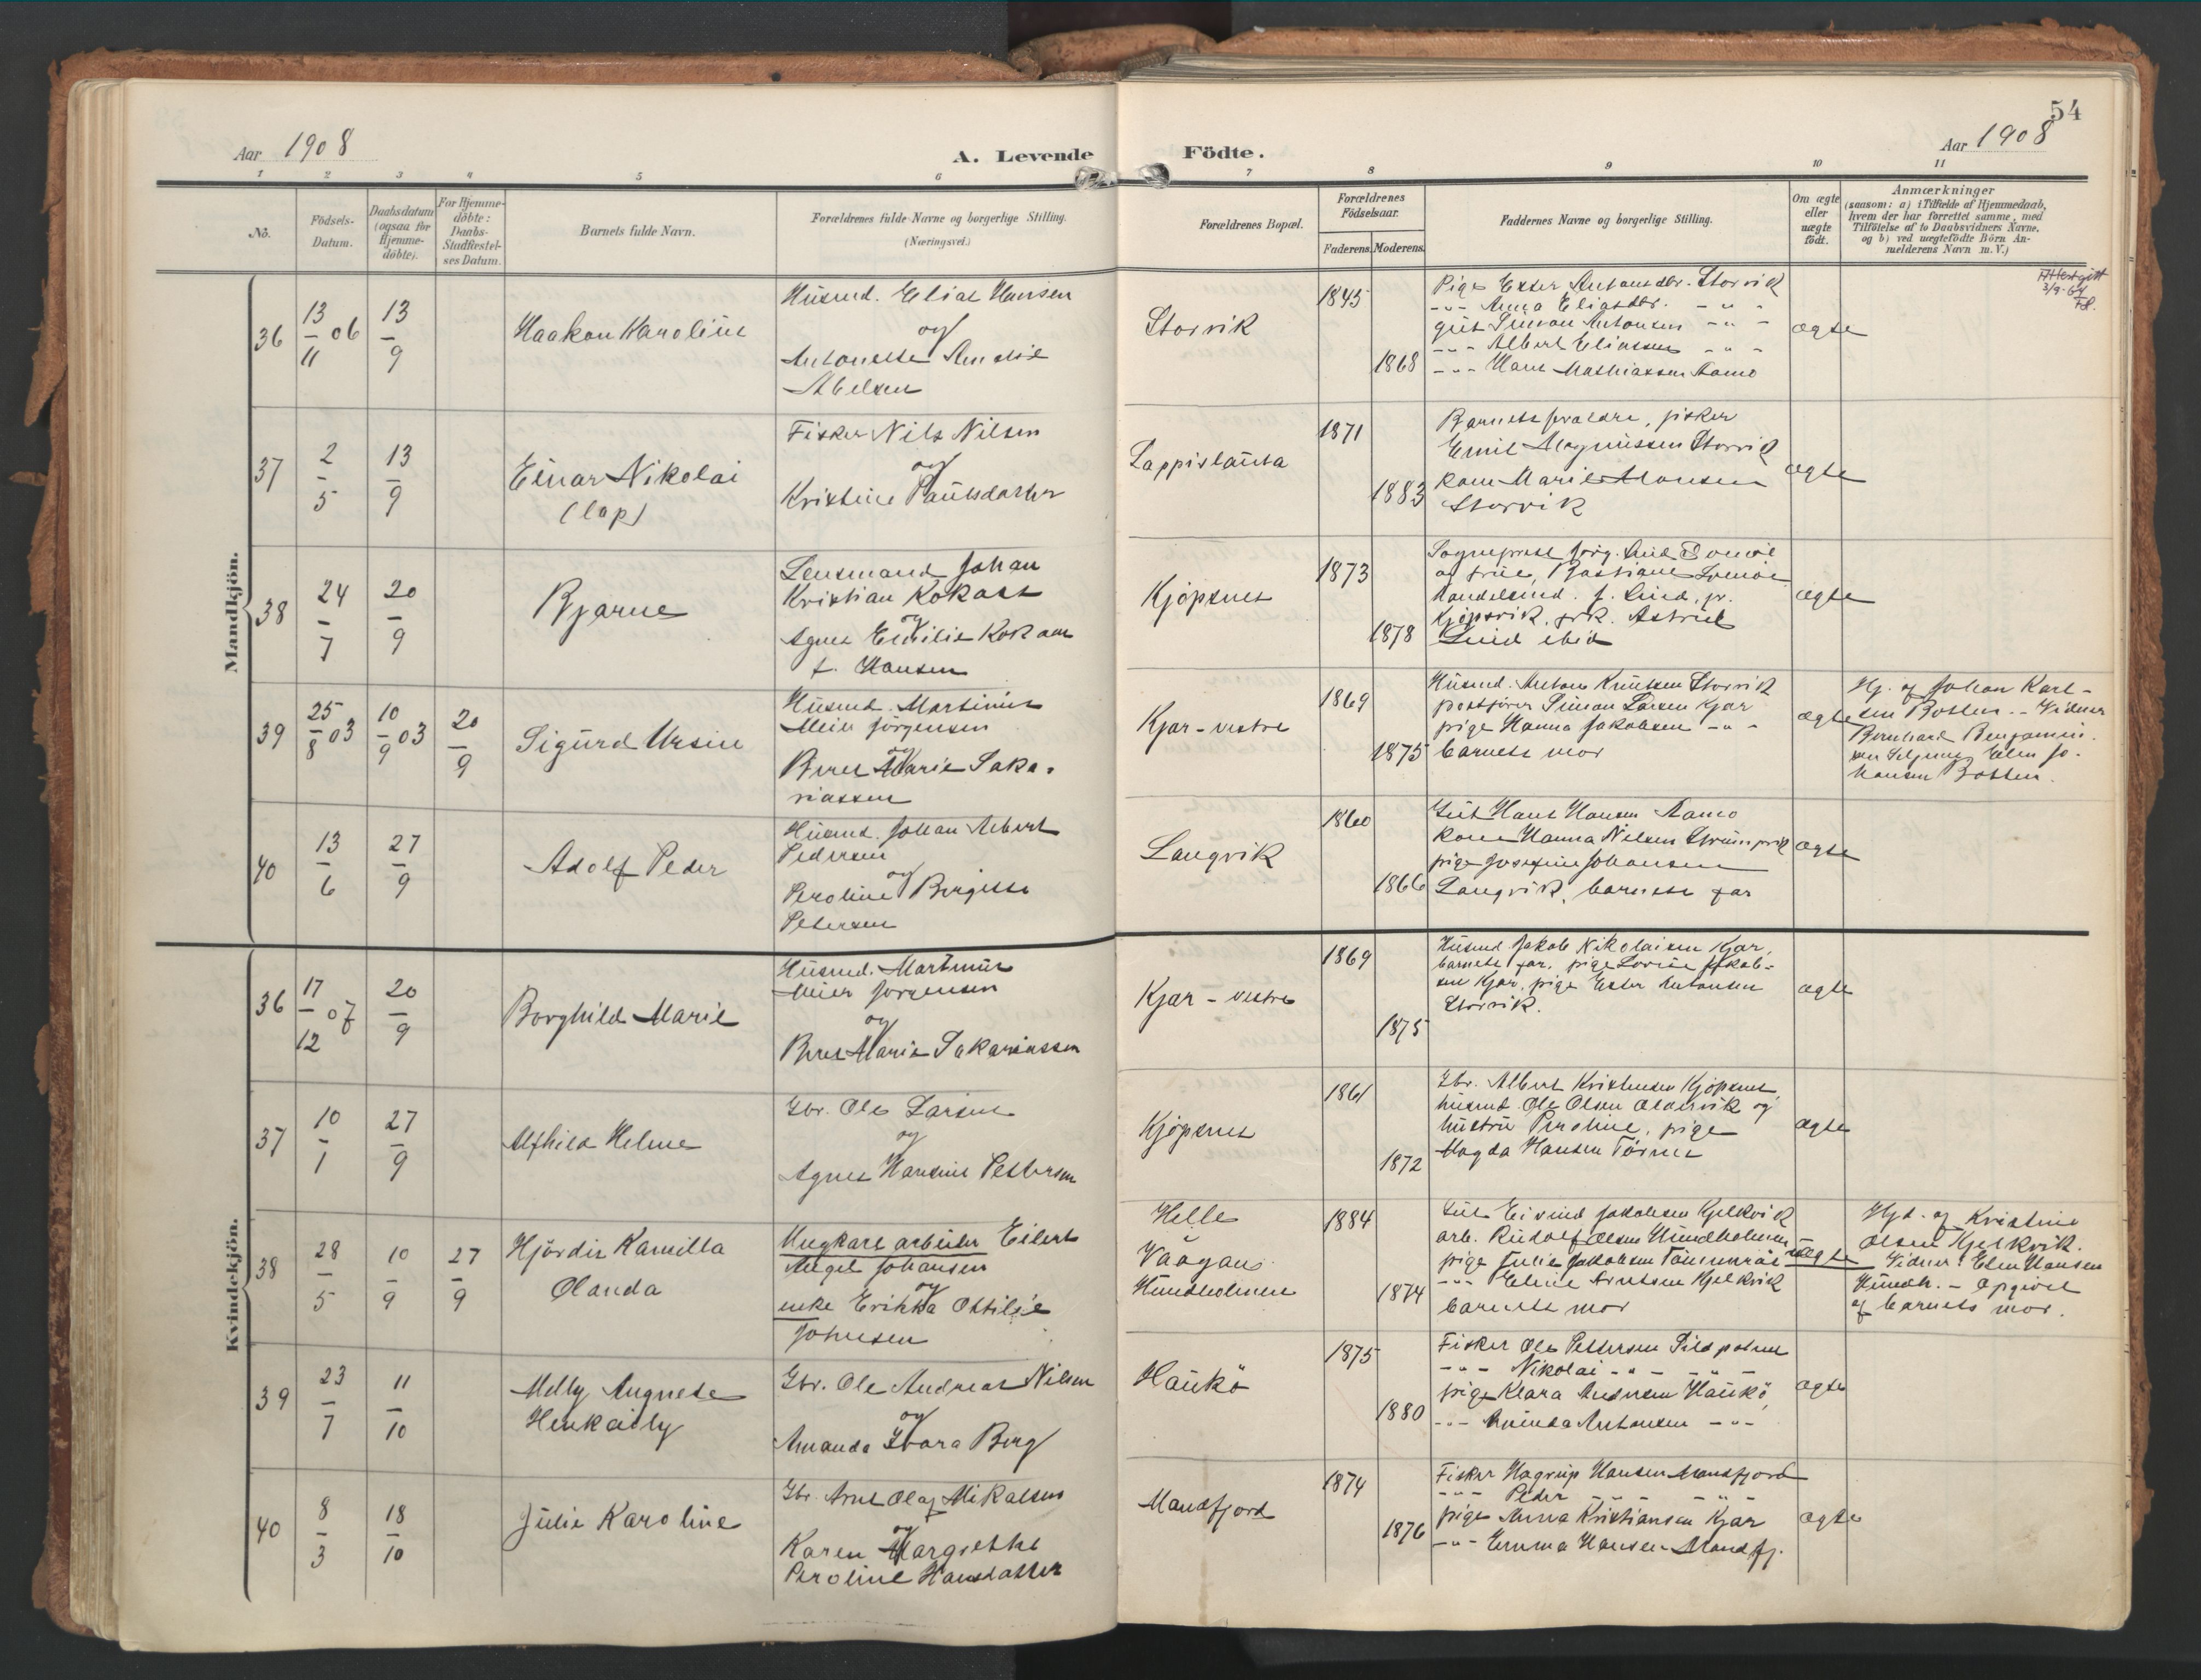 54
Aar 1908
A. Levende
Fødte.
Aar 1908
1 2 3 4 5 6 7 8 9 10 11
No.
Fødsels-
Datum.
Daabsdatum
(ogsaa for
Hjemme-
døbte).
For Hjemme-
døbte:
Daabs-
Stadfæstel-
ses Datum.
Barnets fulde Navn.
Forældrenes fulde Navne og borgerlige Stilling.
(Næringsvei.)
Forældrenes Bopæl.
Forældrenes
Fødselsaar.
Faderens. Moderens.
Faddernes Navne og borgerlige Stilling.
Om ægte
eller
uægte
født.
Anmærkninger
(saasom: a) i Tilfælde af Hjemmedaab,
hvem der har forrettet samme, med
Tilføielse af to Daabsvidners Navne,
og b) ved uægtefødte Børn An-
melderens Navn m. V.)
Mandkjøn.
36
13/11 06
13/9
Haakon Karolius
Husmd. Elias Hansen
og
Antonette Amalie
Abelsen
Storvik
1845
1868
Pige Ester Antonsdtr. Storvik
-"- Anna Eliasdtr. -"-
gut Simon Antonsen -"-
-"- Albert Eliassen -"-
-"- Hans Mathiassen Aamo
ægte
37
2/5
13/9
Einar Nikolai
(lap)
Fisker Nils Nilsen
og
Kristine Paulsdatter
Lappislauta
1871
1883
Barnets foraldre, fisker
Emil Magnussen Storvik
kone Marie Hansen
Storvik
ægte
38
24/7
20/9
Bjarne
Lensmand Johan
Kristian Kokaas
og
Agnes Emilie Kokaas
f. Hansen
Kjøpsnes
1873
1878
Sogneprest
og frue,
Handelsmd. J. Lind, jr.
Kjøpsvik, frk. Astrid
Lind ibid
ægte
39
25/8 03
10/9 03
20/9
Sigurd Ursin
Husmd. Martinus
Meier Jørgensen
og
Beret Marie Saka-
riassen
Kjær-vestre
1869
1875
Husmd. Anton Knutsen Storvik
postfører Simon Larsen Kjær
pige Hanna Jakobsen -"-
barnets mor
ægte
Hj. af Johan Karl-
sen Botten. - Vidner
Bernhard Benjamin-
sen Ellen Jo-
hansen Botten.
40
13/6
27/9
Adolf Peder
Husmd. Johan Albert
Pedersen
og
Peroline Birgitte
Petersen
Langvik
1860
1866
Gut Hans Hansen Aamo
kone Hanna Nilsen
pige Josefine Johansen
Langvik, barnets far
ægte
Kvindekjøn.
36
17/12 07
20/9
Borghild Marie
Husmd. Martinus
Meier Jørgensen
og
Beret Marie Sakariassen
Kjær-vestre
1869
1875
Husmd. Jakob Nikolaisen Kjær,
barnets far, pige Lovise Jakob-
sen Kjær, pige Ester Antonsen
Storvik.
ægte
37
10/1
27/9
Alfhild Helene
Gbr. Ole Larsen
og
Agnes Hansine Pettersen
Kjøpsnes
1861
1872
Gbr. Albert Kristensen Kjøpsnes
husmd. Ole Olsen Oldervik og
hustru Peroline, pige
Magda Hansen
ægte
38
28/5
10/9
27/9
Hjördis Kamilla
Olanda
Ungkarl arbeider Eilert
Angel Johansen
og
enke Erikka Ottilie
Johnsen
Helle
Vaagan
Hundholmen
1884
1874
Gut Eivind Jakobsen Kjelkvik
arb. Rudolf Olsen Hundholmen
pige Julie Jakobsen
-"- Eline Kjelkvik
barnets mor
uægte
Hjd. af Kristine
Olsen Kjelkvik.
Vidner: Elen Hansen
Hundh. - Opgivet
af barnets mor.
39
23/7
11/10
Melly Augnete
Gbr. Ole Andreas Nilsen
og
Amanda Berg
Haukø
1875
1880
Fisker Ole Pettersen Sildpolnes
-"- Nikolai -"- -"-
pige Klara Andersen Haukø,
-"- Antonsen -"-
ægte
40
8/3
18/10
Julie Karoline
Gbr. Arnt Olaf Mikalsen
og
Karen Margrethe
Peroline Hansdatter
Mandfjord
1874
1876
Fisker Hagrup Hansen Mandfjord
-"- Peder -"- -"-
pige Anna Kristiansen Kjær
-"- Emma Hansen Mandfj.
ægte